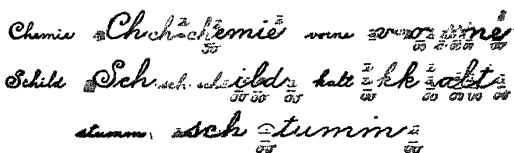 Chemie Ch ch ch emie vorne v o r n e
Schild Sch sch sch i l d kalt k k a l t
stumm sch t u m m